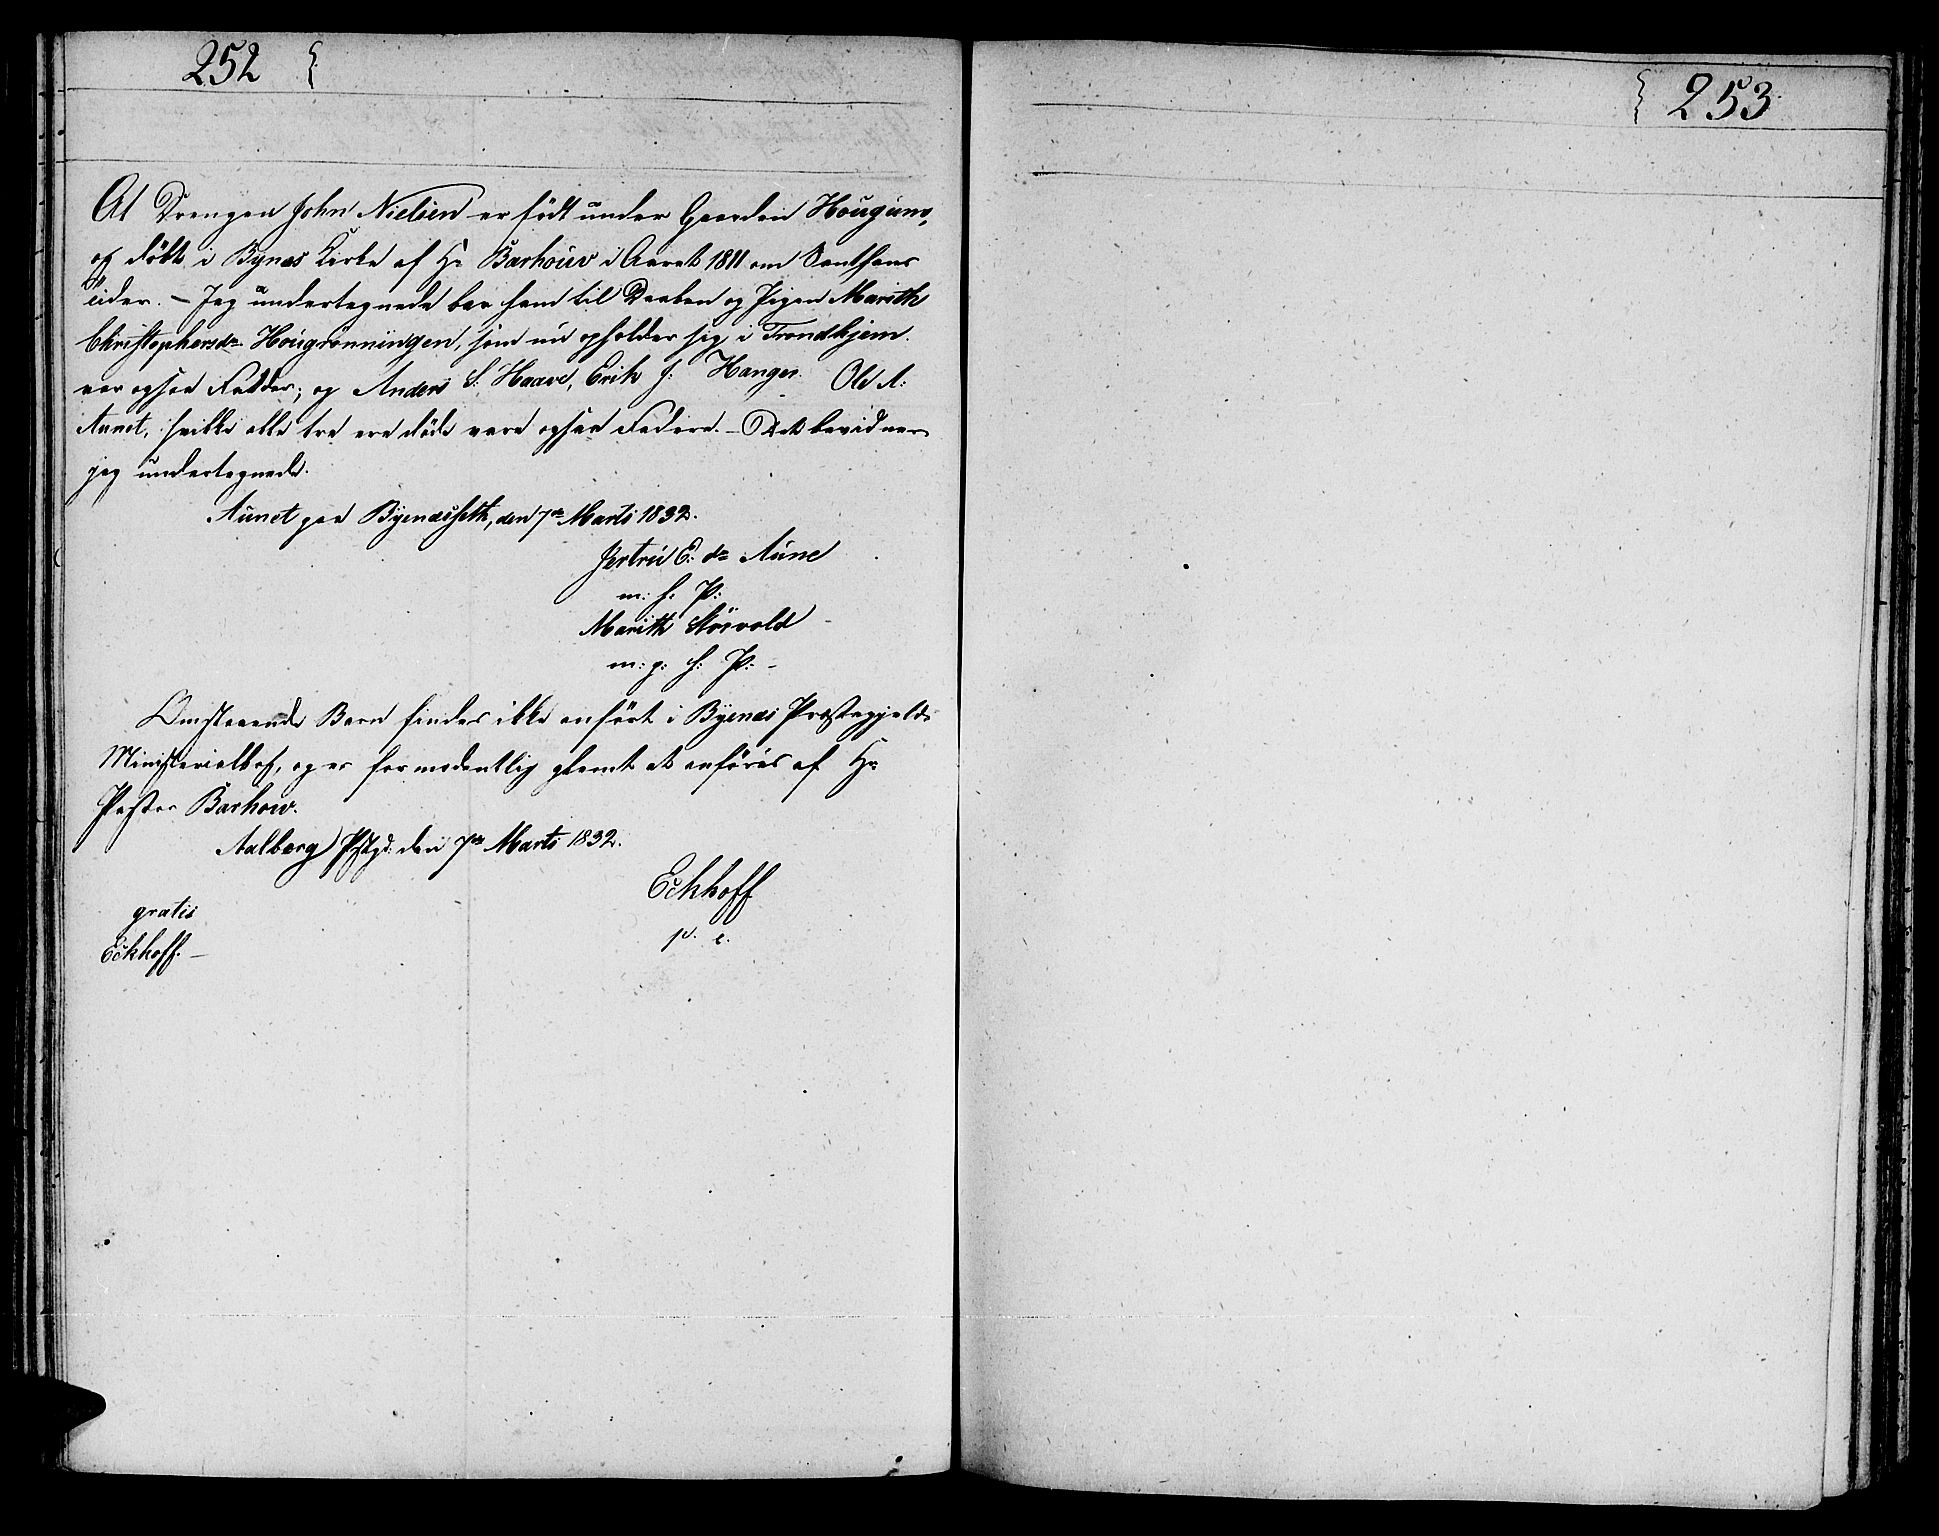 252
253
At Drengen John Nielsen er født under Gaarden Hougum,
og døbt i Bynæs Kirke af Hr Barhouw i Aaret 1811 om Santhans
tider. – Jeg undertegnede bar ham til Daaben og Pigen Marith
Christophersdr Hougrønningen, som nu opholder sig i Trondhjem.
var ogsaa Fadder; og Anders S. Haave, Erik J: Hanger. Ole A:
Aunet, hvilke alle tre ere døde vare ogsaa Faddere. – Det bevidner
jeg undertegnede.
Aunet paa Byenæssett, den 7de Marts 1832.
Jertru E: dr Aune
m: h. P:
Marith Størvold
m: p: h: P: –
Omstaaende Barn findes ikke anført i Byenæs Præstegjelds
Ministerialbog, og er formodentlig glemt at anføres af Hr
Pastor Barhow.
Aalberg Pstgd: den 7de Marts 1832.
Eckhoff
p. c.
gratis
Eckhoff. –